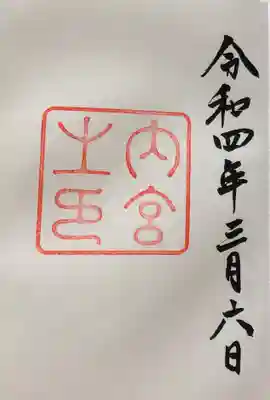 令和四年三月六日
内宮
之印